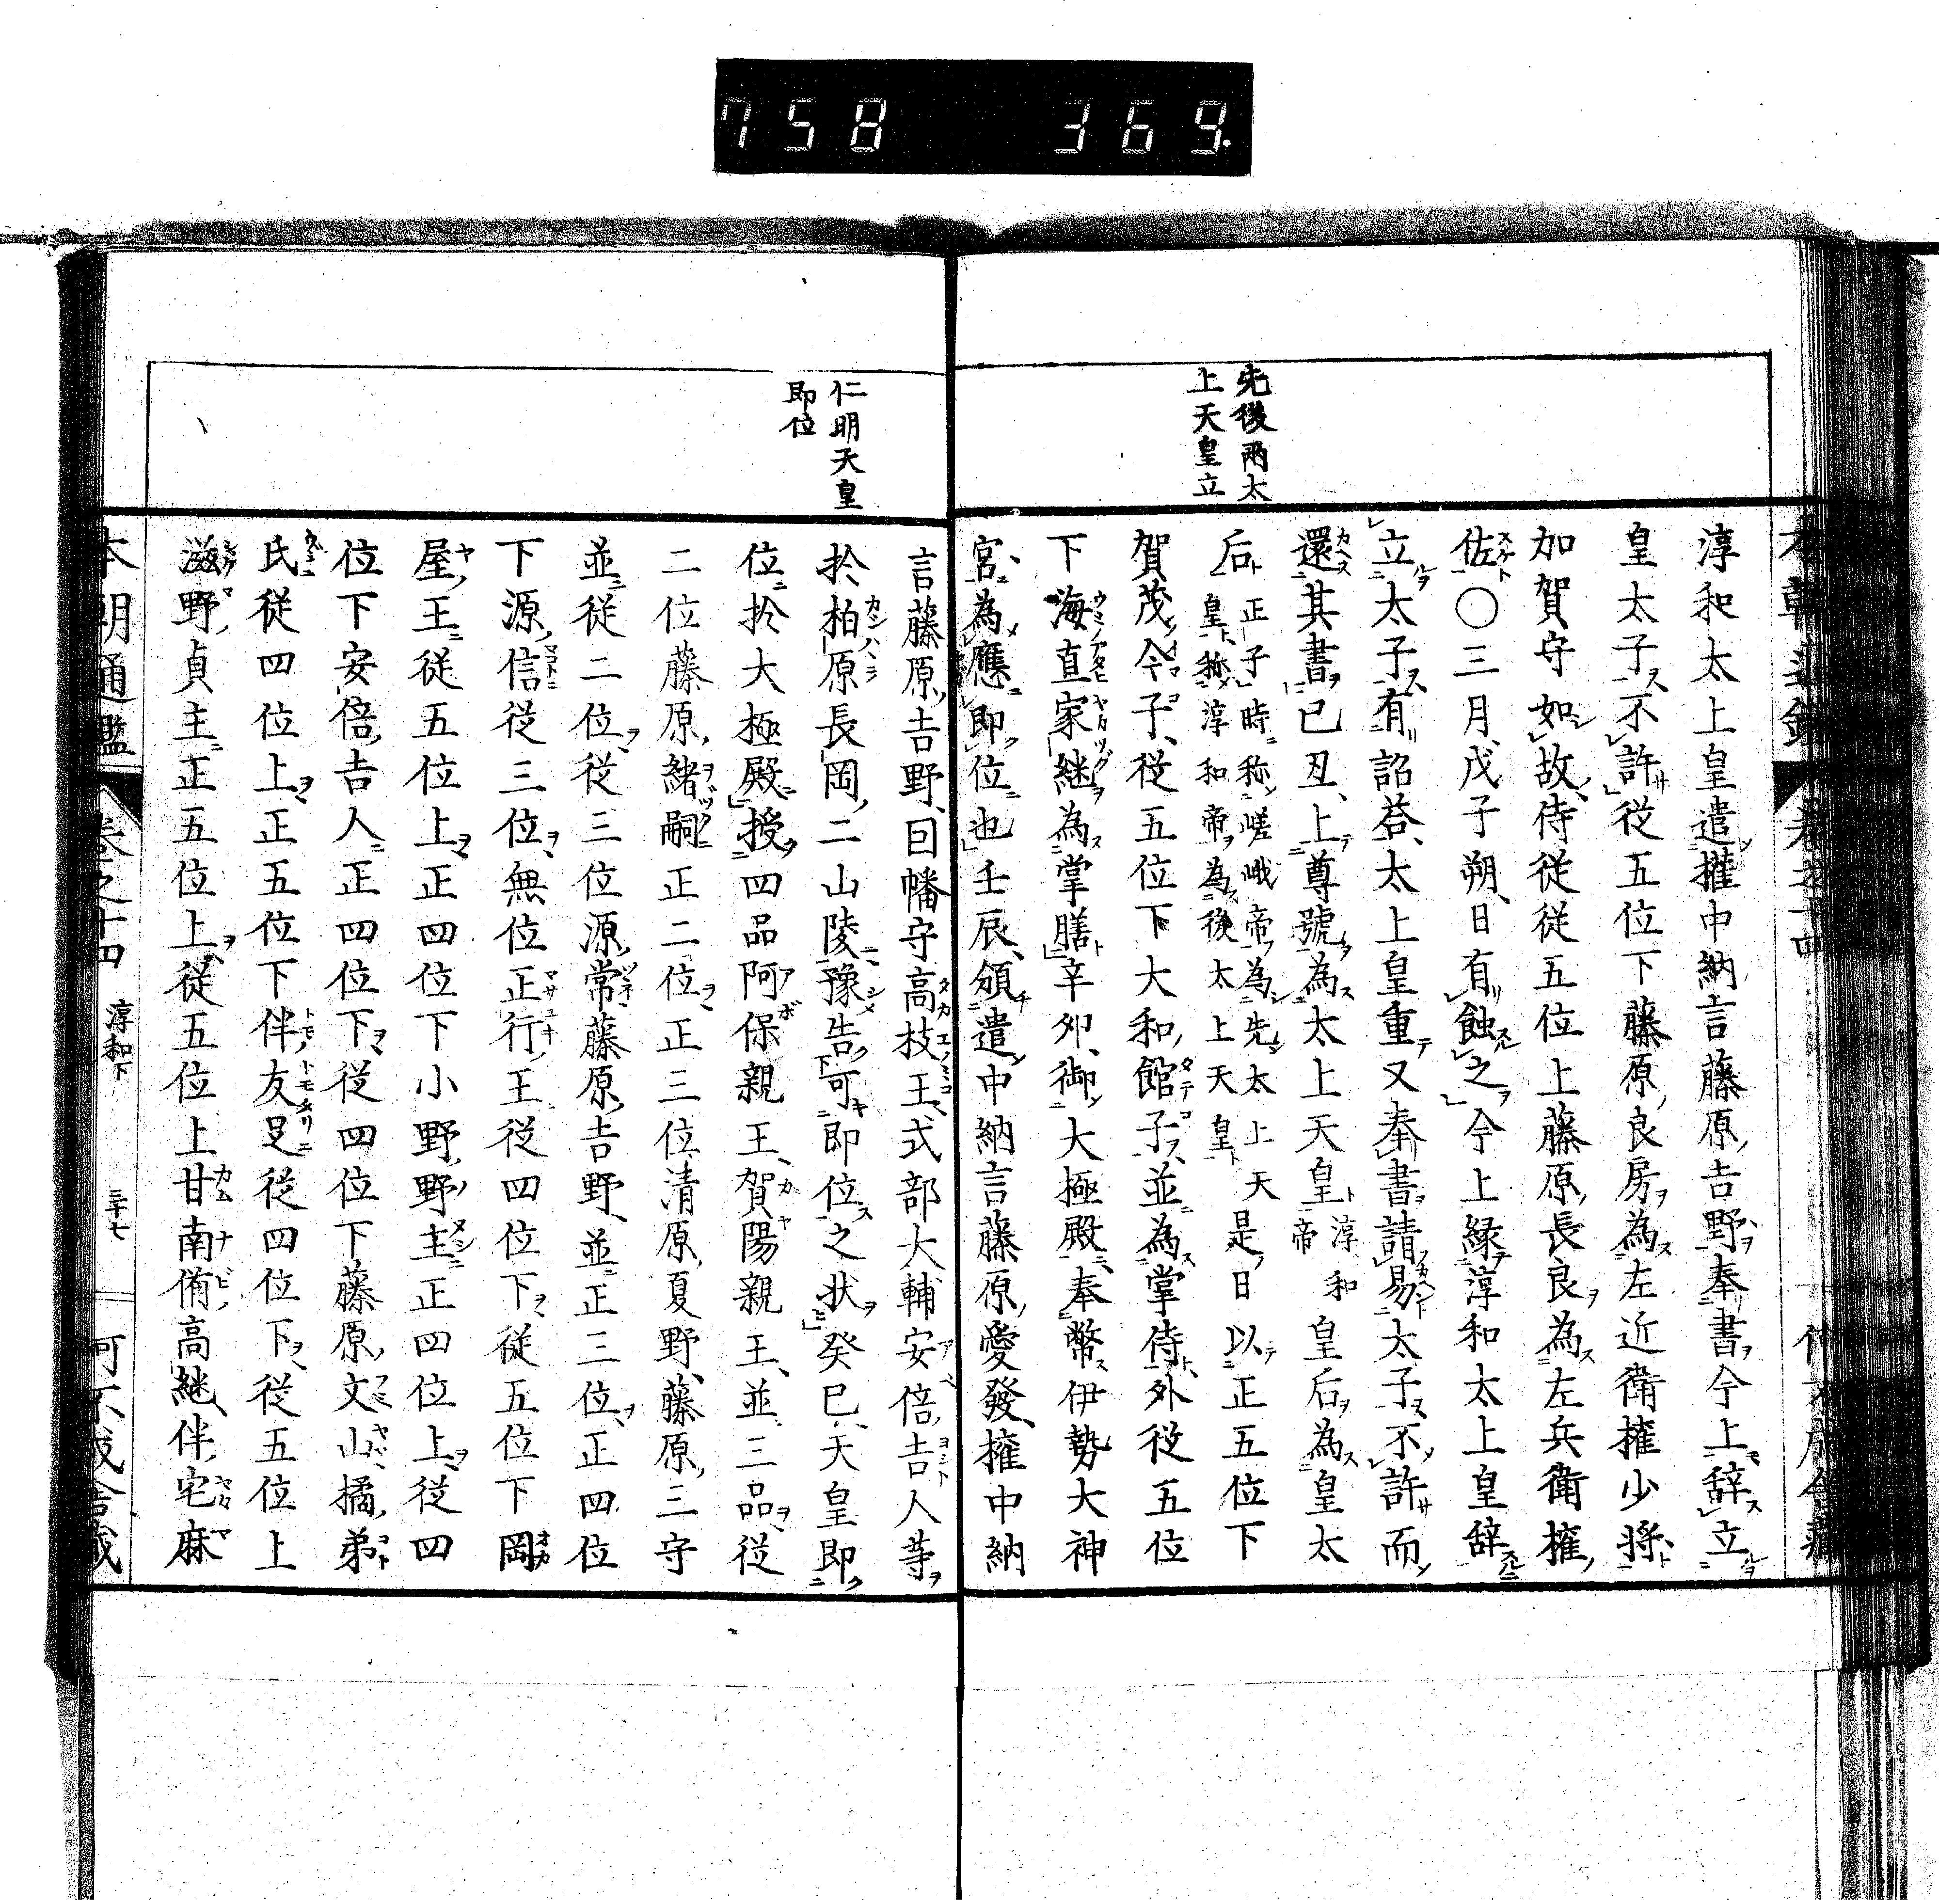 758 369.
先後兩太
上天皇立
淳和太上皇遣權中納言藤原吉野奉書今上辞立
皇太子不許從五位下藤原良房為左近衛權少将
加賀守如故侍從從五位上藤原長良為左兵衛權
佐〇三月戊子朔日有蝕之今上縁淳和太上皇辞
立太子有詔荅太上皇重又奉書請易太子不許而
還其書己丑上尊號為太上天皇淳和帝皇后為皇太
后正子時称嵯峨帝為先太上天皇称淳和帝為後太上天皇是日以正五位下
賀茂今子從五位下大和館子並為掌侍外從五位
下海直家継為掌膳辛卯御大極殿奉幣伊勢大神
宮為應即位也壬辰頒遣中納言藤原愛發權中納
仁明天皇
即位
言藤原吉野因幡守高枝王式部大輔安倍吉人等
於柏原長岡二山陵豫告可即位之状癸巳天皇即
位於大極殿授四品阿保親王賀陽親王並三品從
二位藤原緒嗣正二位正三位清原夏野藤原三守
並從二位從三位源常藤原吉野並正三位正四位
下源信從三位無位正行王從四位下從五位下岡
屋王從五位上正四位下小野野主正四位上從四
位下安倍吉人正四位下從四位下藤原文山橘弟
氏從四位上正五位下伴友足從四位下從五位上
滋野貞主正五位上從五位上甘南備高継伴宅麻
本朝通鑑 卷之十四 淳和下 三十七